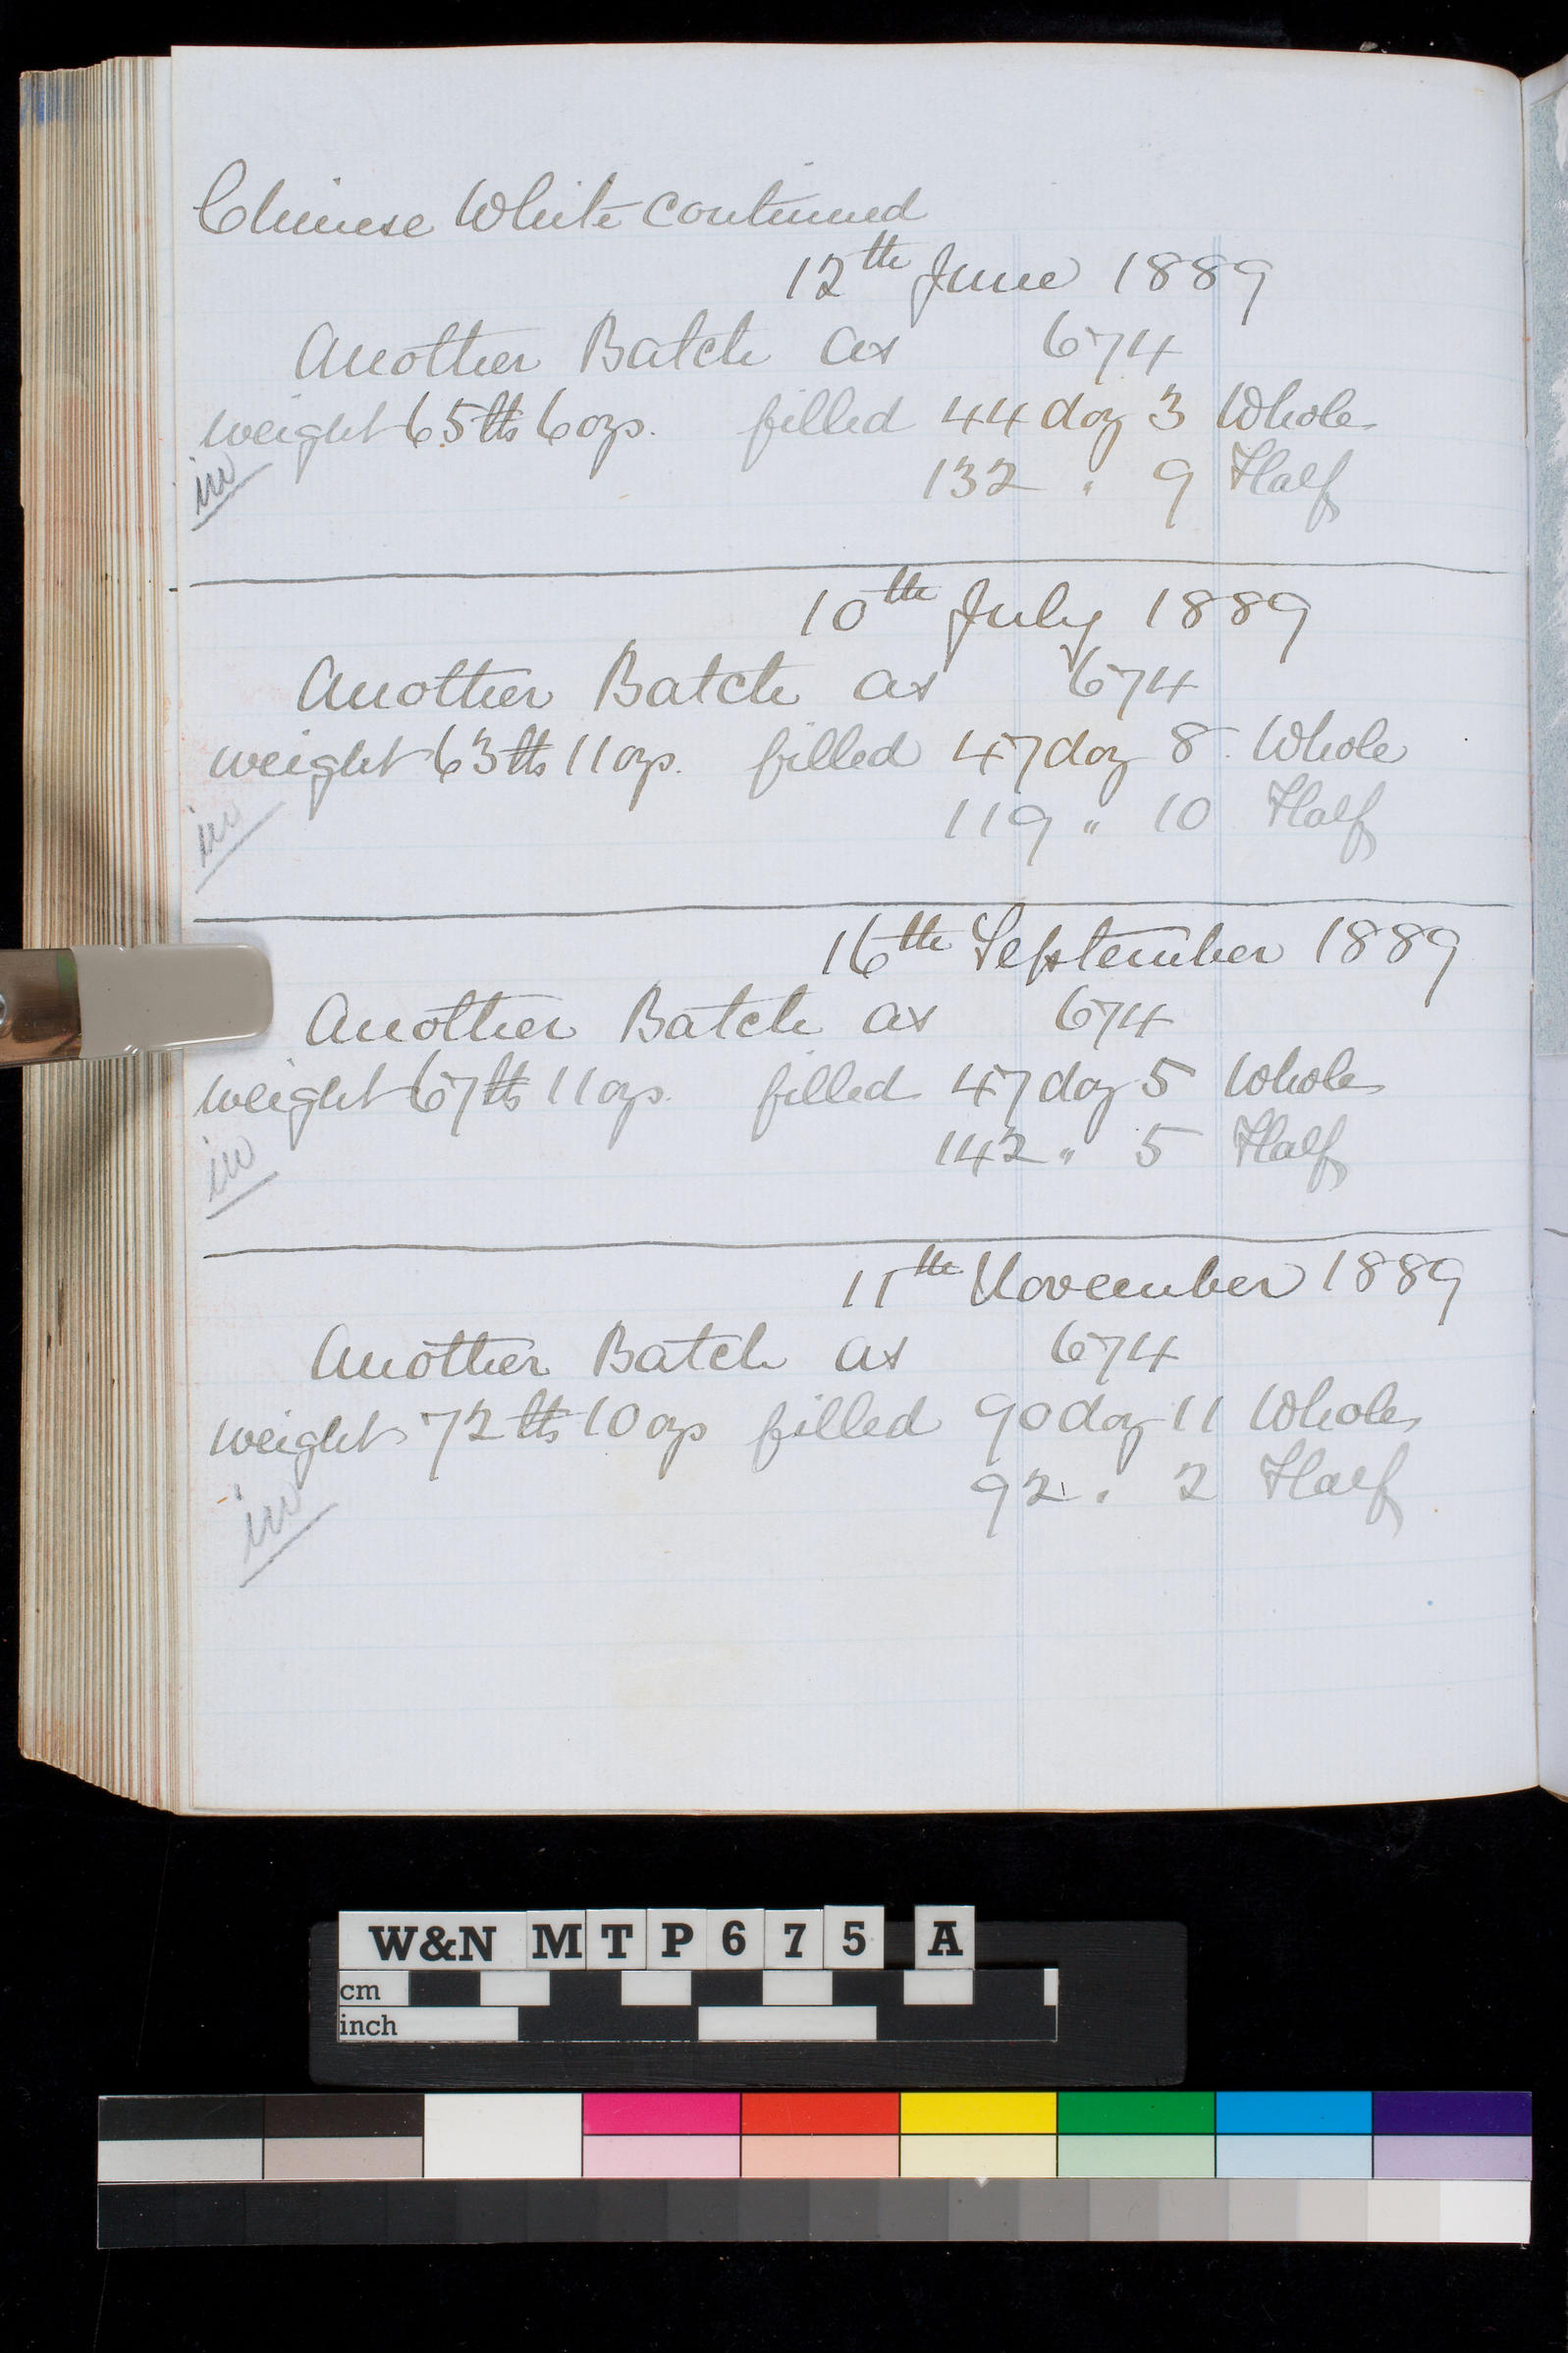 Chinese White continued
12th June 1889
Another Batch as 674
weight 65 lbs 6 ozs. filled 44 doz 3 Whole
in
132 " 9 Half
10th July 1889
Another Batch as 674
weight 63 lbs 11 ozs. filled 47 doz 8 Whole
in
119 " 10 Half
16th September 1889
Another Batch as 674
weight 67 lbs 11 ozs. filled 47 doz 5 Whole
in
142 " 5 Half
11th November 1889
Another Batch as 674
weight 72 lbs 10 ozs filled 90 doz 11 Whole
92 " 2 Half
in
W&N MTP675 A
cm
inch